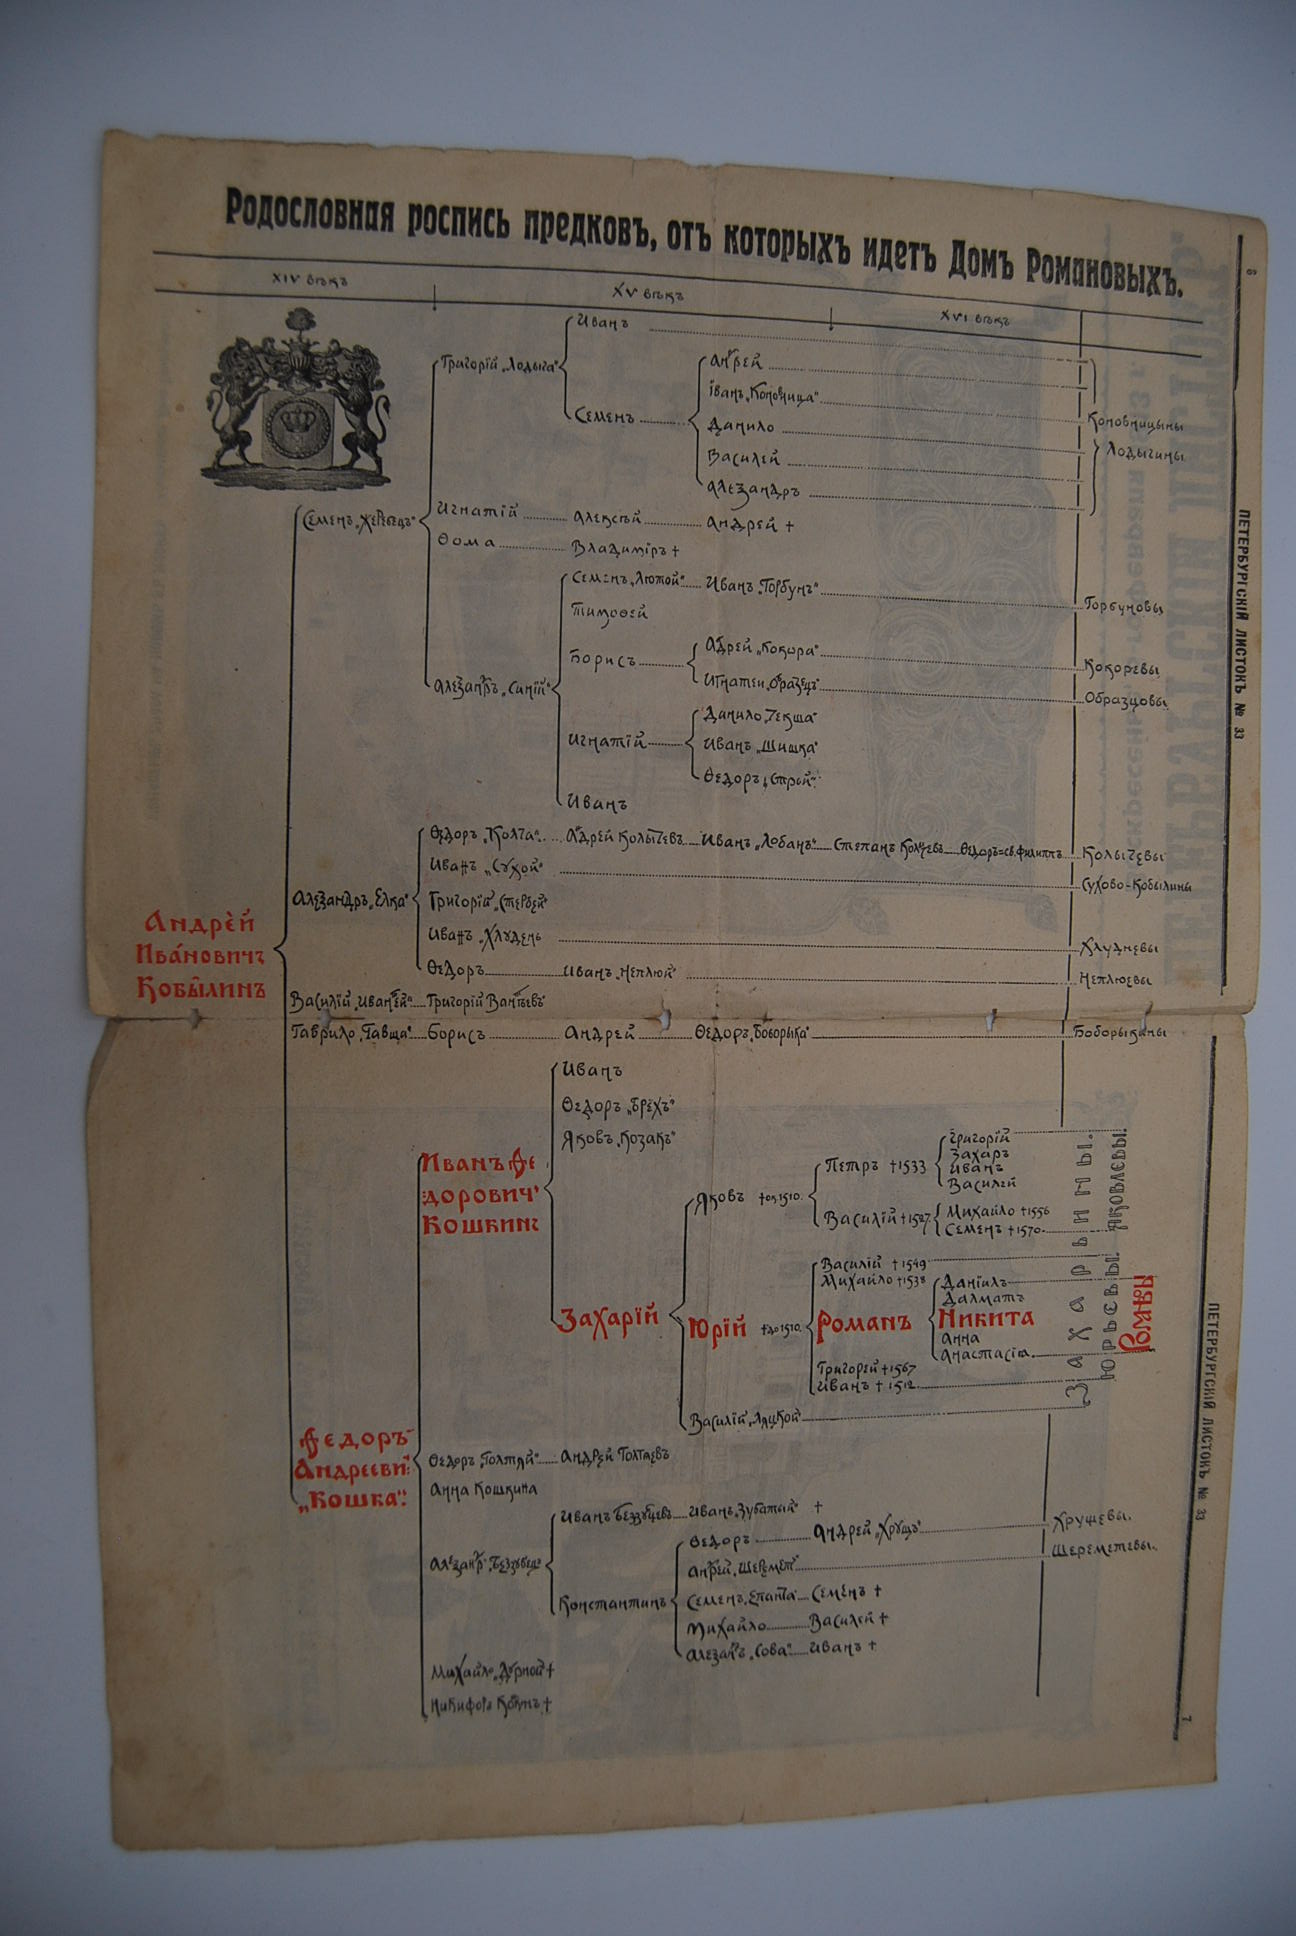 Родословная роспись предковъ, отъ которыхъ идетъ Домъ Романовыхъ.
XIV вѣкъ
XV вѣкъ
XVI вѣкъ
6
Иванъ
Григорій „Лодыга“
Андрей
Іванъ „Коновница“
Семенъ
Данило
Коновницыны
Василей
Лодыгины
Алеѯандръ
Семенъ „Жеребецъ“
Игнатій
Алексѣй
Андрей †
Ѳома
Владимірѣ †
Семенъ „Лютой“
Иванъ „Горбунъ“
Горбуновы
Тимоѳей
Борисъ
Адрей „Кокора“
Кокоревы
Игнатеи „Образецъ“
Образцовы
Алеѯандръ „Синій“
Игнатій
Данило „Текша“
Иванъ „Шишка“
Ѳедоръ
Иванъ
Ѳедоръ „Колча“
Адрей Колычевъ
Иванъ „Лобанъ“
Степанъ
Ѳедоръ=св. Филиппъ
Колычевы
Иванъ „Сухой“
Сухово-Кобылины
Алеѯандръ „Елка“
Григорій
Иванъ „Хлуденъ
Хлудневы
Ѳедоръ
Иванъ „Неплюй“
Неплюевы
Андрей
Ивановичъ
Кобылинъ
Василій
Григорій Вантѣевъ
Гаврило „Гавша“
Борисъ
Андрей
Ѳедоръ „Боборыка“
Боборыкины
Иванъ
Ѳедоръ „Брехъ“
Яковъ „Козакъ“
Иванъ Ѳе
доровичъ
Кошкинъ
Яковъ
Петръ †1533
Григорій
Захаръ
Иванъ
Василей
Василій †1527
Михайло †1556
Семенъ †1570
Яковлевы.
Захарьины.
Захарій
Юрій †до 1510.
Василій †1549
Михайло †1538
Романъ
Даніилъ
Далматъ
Никита
Анна
Анастасія
Григорей †1567
Иванъ †1512
Юрьевы.
Василій „Ляцкой“
Ѳедоръ
Андрееви
„Кошка“:
Ѳедоръ „Голтяй“
Андрей Голтяевъ
Анна Кошкина
Иванъ Беззубцевъ
Иванъ „Зубатый“ †
Ѳедоръ
Андрей „Хрущъ“
Хрущевы.
Андрей „Шеремет“
Шереметевы.
Константинъ
Семенъ „Епанча“
Семенъ †
Михайло
Василей †
Алеѯандръ „Сова“
Иванъ †
Михайло „Дурной“ †
ПЕТЕРБУРГСКІЙ ЛИСТОКЪ № 33
ПЕТЕРБУРГСКІЙ ЛИСТОКЪ № 33
7